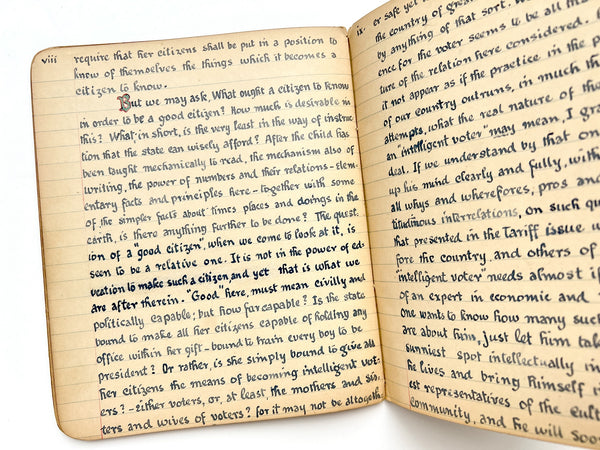 viii
require that her citizens shall be put in a position to
know of themselves the things which it becomes a
citizen to know.
But we may ask, What ought a citizen to know
in order to be a good citizen? How much is desirable in
this? What, in short, is the very least in the way of instruc
tion that the state can wisely afford? After the child has
been taught mechanically to read, the mechanism also of
writing, the power of numbers and their relations - elem-
entary facts and principles here - together with some
of the simpler facts about times places and doings in the
earth, is there anything further to be done? The quest.
ion of a "good citizen", when we come to look at it, is
seen to be a relative one. It is not in the power of ed-
ucation to make such a citizen, and yet that is what we
are after therein. "Good" here, must mean civilly and
politically capable; but how far capable? Is the state
bound to make all her citizens capable of holding any
office within her gift - bound to train every boy to be
president? Or rather, is she simply bound to give all
her citizens the means of becoming intelligent vot-
ers? - either voters, or, at least, the mothers and sis,
ters and wives of voters? for it may not be altogethe
ix.
er safe yet
the country of great
by anything of that sort. W
ence for the voter seems to be all tha
ture of the relation here considered.
it not appear as if the practice in the p
of our country outruns, in much th
attempts, what the real nature of the
an "intelligent voter" may mean, I gra
deal. If we understand by that on
up his mind clearly and fully, with
all whys and wherefores, pros and
titudinous interrelations, on such qu
that presented in the Tariff issue w
fore the country, and others of
"intelligent voter" needs almost i
of an expert in economic and
one wants to know how many such
are about him, just let him tak
sunniest spot intellectually in
he lives and bring himself
est representatives of the cult
community, and he will soo